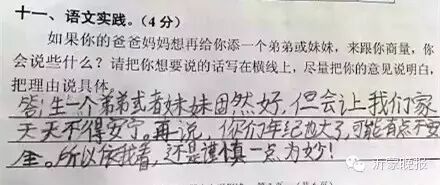 十一、语文实践。（4分）
如果你的爸爸妈妈想再给你添一个弟弟或妹妹，来跟你商量，你
会说些什么？请把你想要说的话写在横线上，尽量把你的意见说明白，
把理由说具体。
答：生一个弟弟或者妹妹固然好，但会让我们家
天天不得安宁。再说，你们年纪也大了，可能有点不安
全。所以依我看，还是谨慎一点为妙！
沂蒙晚报